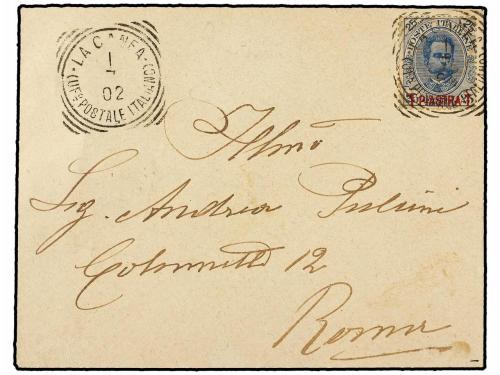 LA CANEA
1
02
(UFF° POSTALE ITALIANO)
25 POSTE ITALIANE 25
1 PIASTRA 1
Illmo
Sig. Andrea Pulini
Colonnette 12
Roma